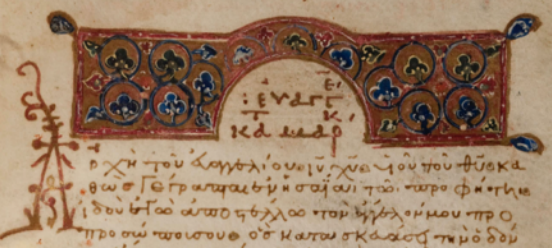 εὐαγγε
κατ μαρκ
Ἀρχὴ τοῦ εὐαγγελίου ιυ χυ υἱοῦ τοῦ θυ κα
θὼς γέγραπται ἐν ἠσαΐαι τῶι προφήτηι
ἰδοὺ ἐγὼ ἀποστέλλω τὸν ἄγγελόν μου πρὸ
προσώπου σου ὃς κατασκευάσει τὴν ὁδόν